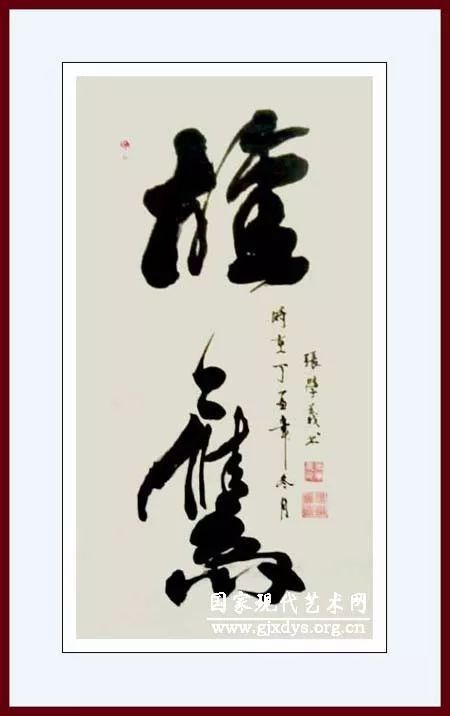 雄
鷹
時在丁酉年冬月
張學義书
国家现代艺术网
www.gjxdys.org.cn